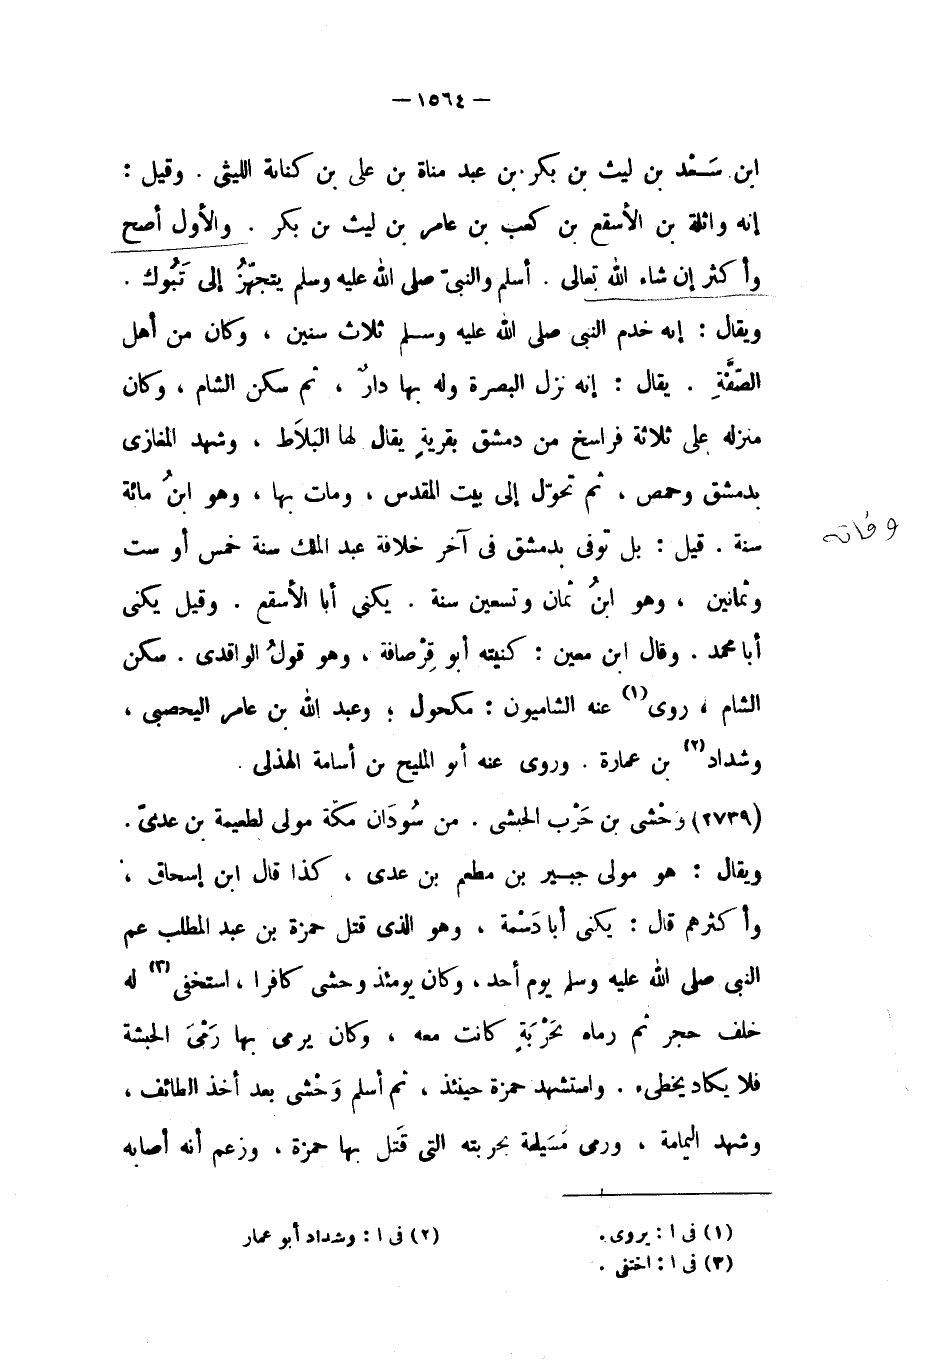 — ١٥٦٤ —
ابن سَعْد بن ليث بن بكر بن عبد مناة بن على بن كنانة الليثى . وقيل :
إنه واثلة بن الأسقع بن كعب بن عامر بن ليث بن بكر . والأول أصح
وأكثر إن شاء الله تعالى . أسلم والنبىّ صلى الله عليه وسلم يتجهّزُ إلى تَبُوك .
ويقال : إنه خدم النبى صلى الله عليه وسلم ثلاث سنين ، وكان من أهل
الصّفَّةِ . يقال : إنه نزل البصرة وله بها دارٌ ، ثم سكن الشام ، وكان
منزله على ثلاثة فراسخ من دمشق بقريةٍ يقال لها البَلَاط ، وشهد المغازى
بدمشق وحمص ، ثم تحوّل إلى بيت المقدس ، ومات بها ، وهو ابنُ مائة
سنة . قيل : بل توفى بدمشق فى آخر خلافة عبد الملك سنة خمس أو ست
وفاته
وثمانين ، وهو ابنُ ثمان وتسعين سنة . يكنى أبا الأسقع . وقيل يكنى
أبا محمد . وقال ابن معين : كنيته أبو قِرْصافة ، وهو قولُ الواقدى . سكن
الشام ، روى(١) عنه الشاميون : مكحول ؛ وعبد الله بن عامر اليحصبى ،
وشداد(٢) بن عمارة . وروى عنه أبو المليح بن أسامة الهذلى .
(٢٧٣٩) وَحْشى بن حَرْب الحبشى . من سُودَان مكّة مولى لطعيمة بن عدىّ .
ويقال : هو مولى جبير بن مطعم بن عدى ، كذا قال ابن إسحاق ،
وأكثرهم قال : يكنى أبا دَسْمة ، وهو الذى قتل حمزة بن عبد المطلب عم
النبى صلى الله عليه وسلم يوم أحد ، وكان يومئذ وحشى كافرا ، استخفى(٣) له
خلف حجر ثم رماه بحَرْبَةٍ كانت معه ، وكان يرمى بها رَمْىَ الحبشة
فلا يكاد يخطىء . واستشهد حمزة حينئذ ، ثم أسلم وَحْشى بعد أخذ الطائف ،
وشهد اليمامة ، ورمى مُسَيلمة بحربته التى قَتل بها حمزة ، وزعم أنه أصابه
(١) فى ا : يروى .
(٢) فى ا : وشداد أبو عمار
(٣) فى ا : اختفى .